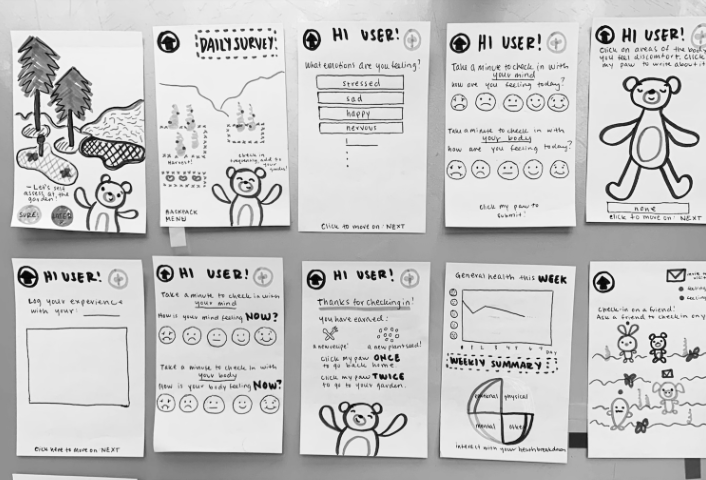 ~ Let's self
assess at the
garden!
SURE!
DAILY SURVEY!
Harvest!
check in
BACKPACK
MENU
HI USER!
What emotions are you feeling?
stressed
sad
happy
nervous
Click to move on: NEXT
HI USER!
Take a minute to check in with
your mind
how are you feeling today?
Take a minute to check in with
your body
how are you feeling today?
click my paw to
submit!
HI USER!
Click on areas of the body
you feel discomfort. Click
my paw to write about it
none
click to move on: NEXT
HI USER!
Log your experience
with your:
Click here to move on: NEXT
HI USER!
Take a minute to check in with
your mind
How is your mind feeling NOW?
Take a minute to check in with
your body
How is your body feeling NOW?
HI USER!
Thanks for checking in!
you have earned:
a new recipe!
a new plant seed!
Click my paw ONCE
to go back home
Click my paw TWICE
to go to your garden.
General health this WEEK
DAY
WEEKLY SUMMARY
physical
mental
interact with your health breakdown
check-in on a friend!
Ask a friend to check in on you